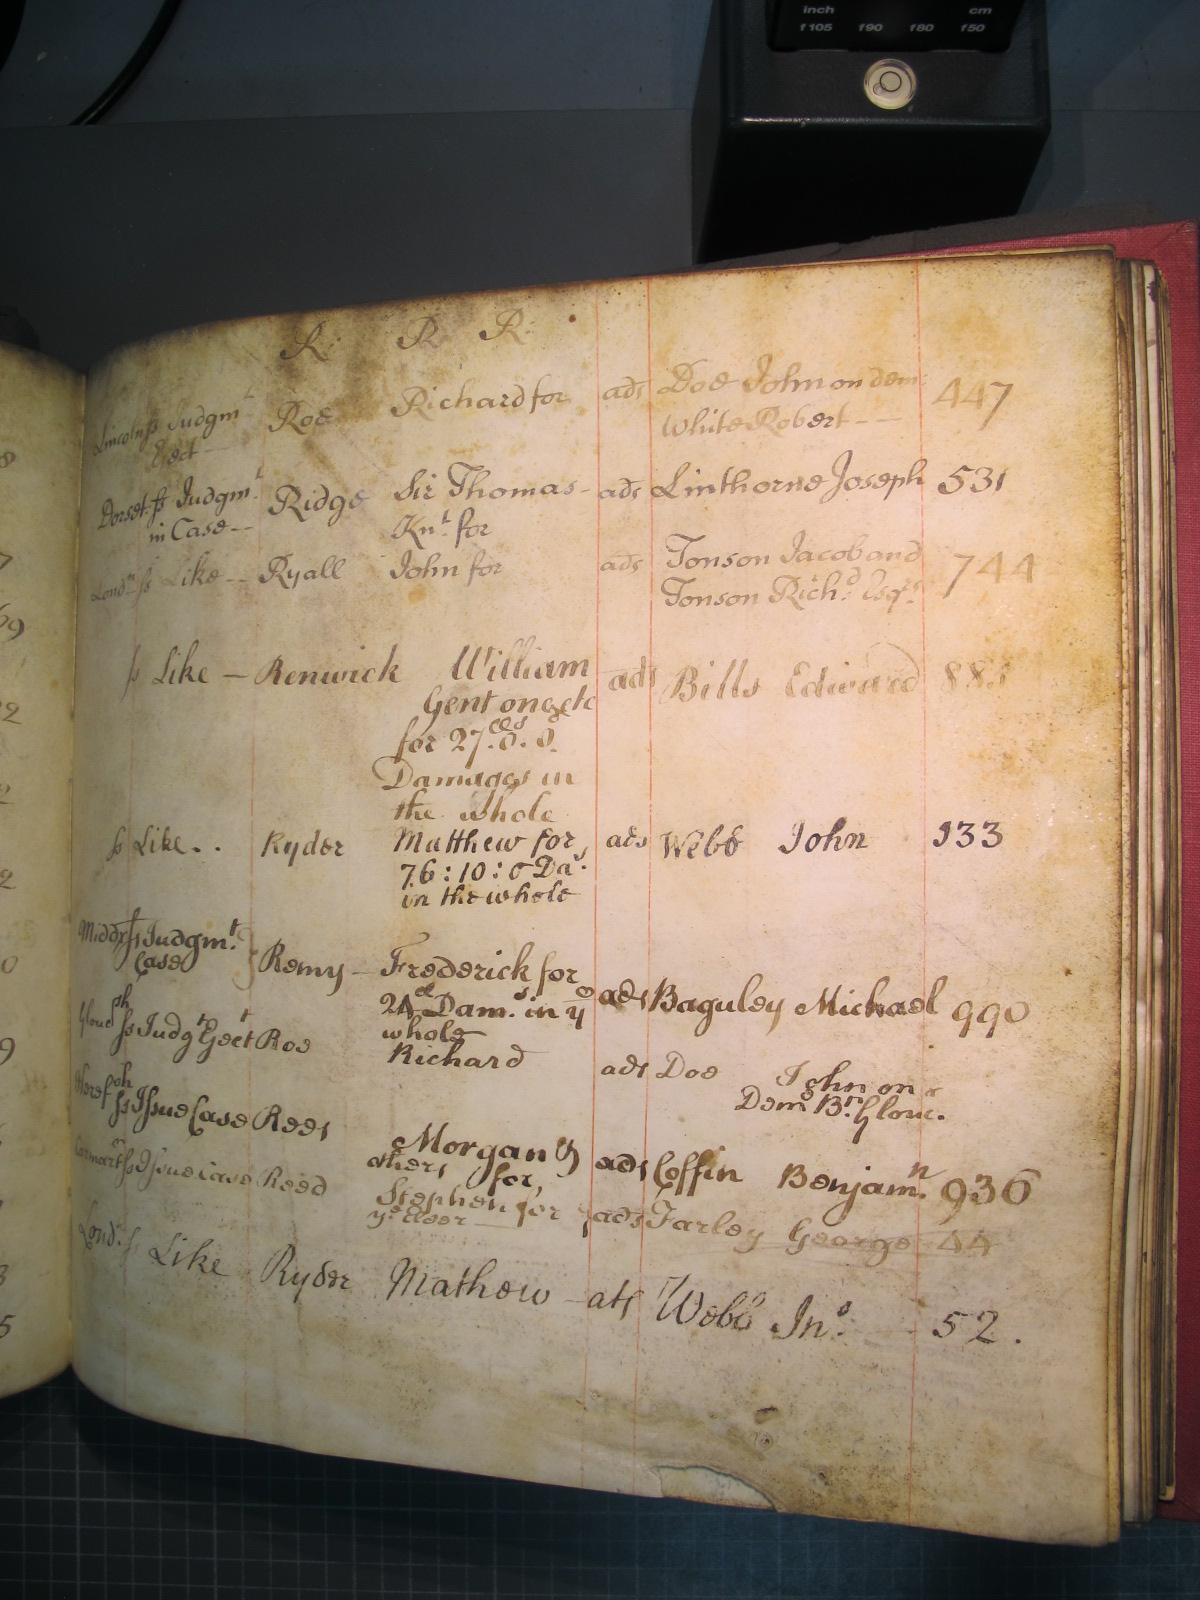 inch cm
f105 f90 f80 f50
R. R. R.
Lincoln ss Judgmt Roe Richard for ads Doe John on dem 447
Eject — White Robert — —
Dorset ss Judgm.t Ridge Sir Thomas - ads Linthorne Joseph 531
in Case — Kn.t for
Lond.n ss Like — Ryall John for ads Tonson Jacob and 744
Tonson Rich.d Esq.r
ss Like — Renwick William ads Bills Edward
Gent one etc
for 27. 8. 8.
Damages in
the whole
ss Like . . Ryder Matthew for ads Webb John 933
76 : 10 : 0 Da.s
in the whole
Middx ss Judgm.t Remy — Frederick for ads Baguley Michael 990
Case 24 Dam.s in ye
whole
ss Judgt Eject Roe Richard ads Doe John on
Dem Bn. Glouc.
ss Issue Case Rees Morgan & ads Coffin Benjam.n 936
others for,
ss Issue Case Reed Stephen for ads Farley George 44
Lond.n ss Like Ryder Mathew — ats Webb Jn.o 52.